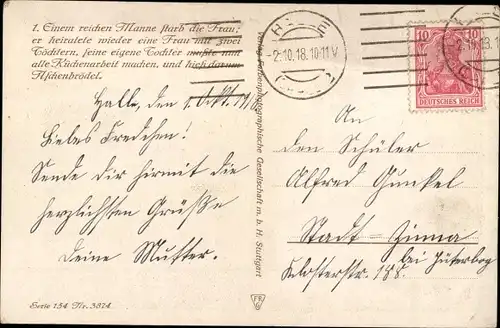 1. Einem reichen Manne starb die Frau,
er heiratete wieder eine Frau mit zwei
Töchtern, seine eigene Tochter mußte nun
alle Küchenarbeit machen, und hieß darum
Aschenbrödel.
HALLE
-2.10.18.10-11V
10 10
DEUTSCHES REICH
Halle, den 1. Okt. 19
Liebes Fredchen!
Sende Dir hiermit die
herzlichsten Grüße
Deine Mutter.
Verlag Farbenphotographische Gesellschaft m. b. H. Stuttgart
An
den Schüler
Alfred Gunkel
Stadt-Zinna
bei Jüterbog
Klosterstr. 188.
Serie 154 Nr. 3874